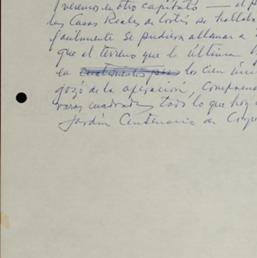 veremos en otro capítulo — el p
las Casas Reales de Cortés se hallaba
facilmente se pudiera allanar a
que el terreno que la última
en los cien
gozó de la operación, comprend
varas cuadradas, todo lo que hoy
Jardín Centenario de Coyo